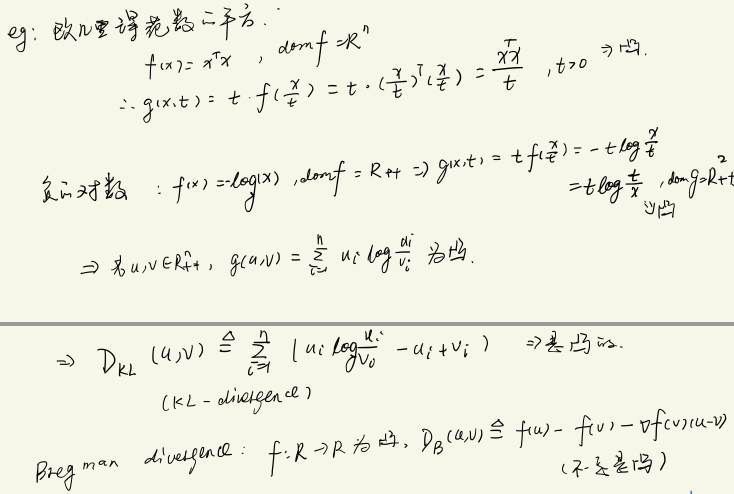 eg: 欧几里得范数的平方:
f(x) = xᵀx , dom f = Rⁿ
∴ g(x,t) = t·f(x/t) = t·(x/t)ᵀ(x/t) = xᵀx/t , t>0 ⇒ 凸.
负的对数 : f(x) = -log(x) , dom f = R++ ⇒ g(x,t) = t f(x/t) = -t log x/t
= t log t/x , dom g = R²++
凸
⇒ 若 u,v ∈ Rⁿ++ , g(u,v) = Σᵢ₌₁ⁿ uᵢ log uᵢ/vᵢ 为凸.
⇒ D_KL (u,v) ≜ Σᵢ₌₁ⁿ ( uᵢ log uᵢ/vᵢ - uᵢ + vᵢ ) ⇒ 是凸的.
(KL - divergence)
Bregman divergence: f: R → R 为凸, D_B(u,v) ≜ f(u) - f(v) - ∇f(v)(u-v)
(不一定是凸)